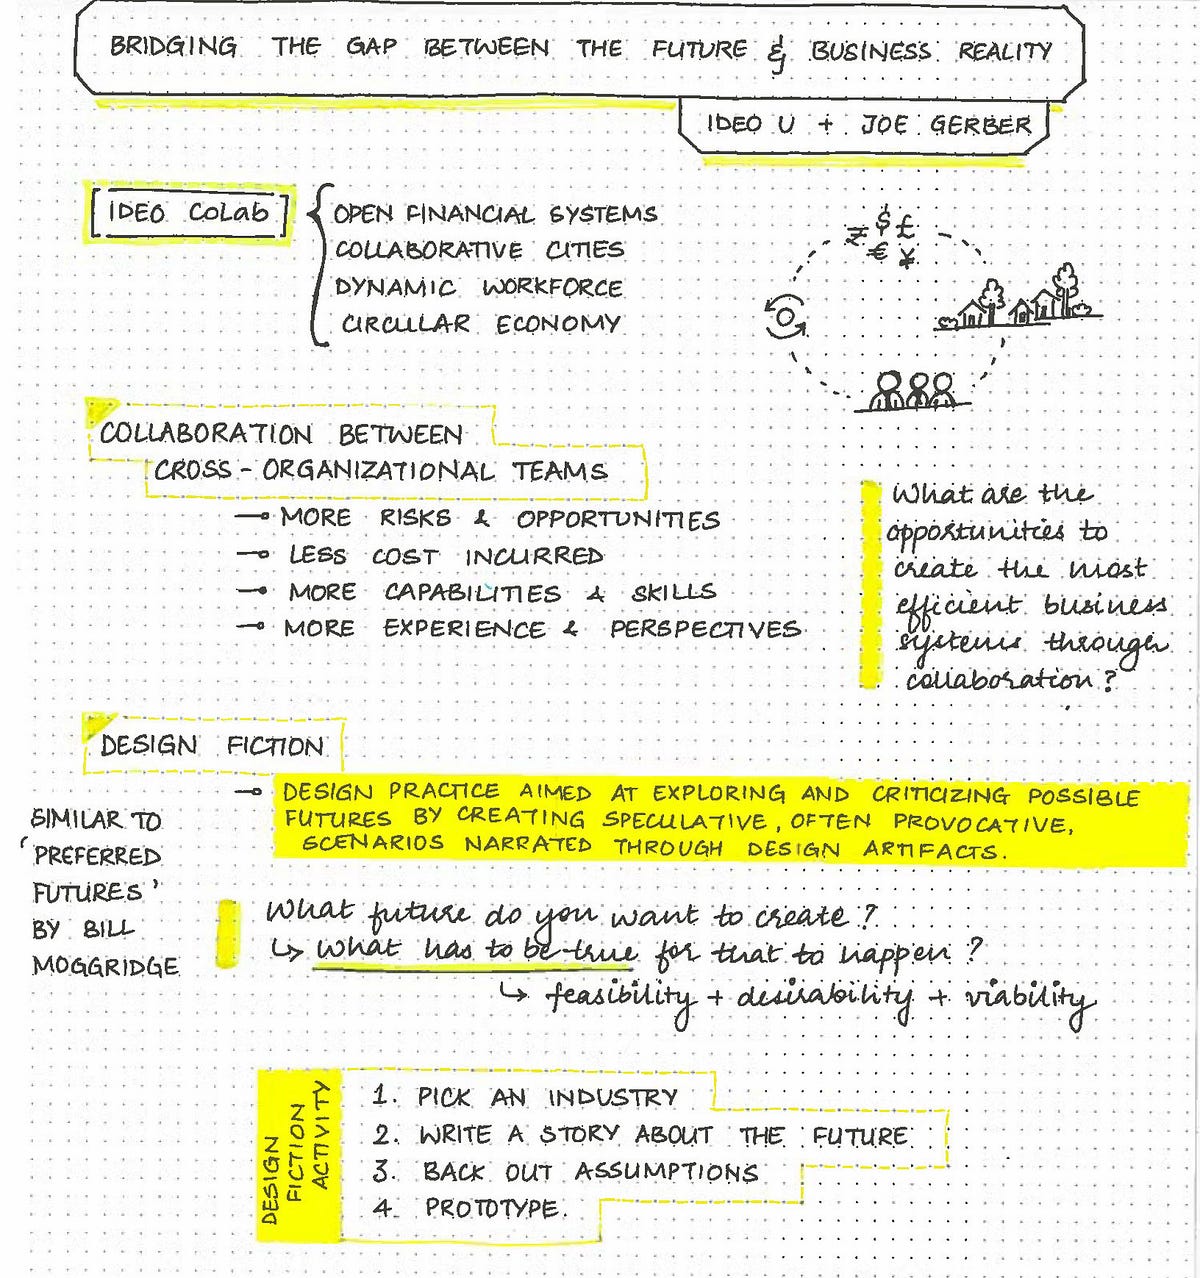 BRIDGING THE GAP BETWEEN THE FUTURE & BUSINESS REALITY
IDEO U + JOE GERBER
IDEO CoLab
OPEN FINANCIAL SYSTEMS
COLLABORATIVE CITIES
DYNAMIC WORKFORCE
CIRCULAR ECONOMY
₹ $ £
€ ¥
COLLABORATION BETWEEN
CROSS-ORGANIZATIONAL TEAMS
MORE RISKS & OPPORTUNITIES
LESS COST INCURRED
MORE CAPABILITIES & SKILLS
MORE EXPERIENCE & PERSPECTIVES
What are the
opportunities to
create the most
efficient business
systems through
collaboration?
DESIGN FICTION
DESIGN PRACTICE AIMED AT EXPLORING AND CRITICIZING POSSIBLE
FUTURES BY CREATING SPECULATIVE, OFTEN PROVOCATIVE,
SCENARIOS NARRATED THROUGH DESIGN ARTIFACTS.
SIMILAR TO
'PREFERRED
FUTURES'
BY BILL
MOGGRIDGE
What future do you want to create?
↳ What has to be true for that to happen?
↳ feasibility + desirability + viability
DESIGN
FICTION
ACTIVITY
1. PICK AN INDUSTRY
2. WRITE A STORY ABOUT THE FUTURE
3. BACK OUT ASSUMPTIONS
4. PROTOTYPE.